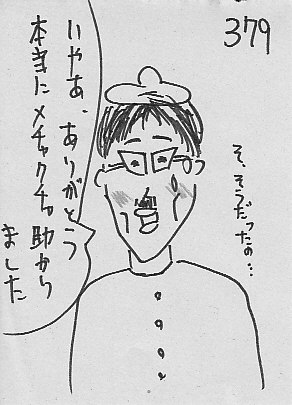 379
いやあ、ありがとう
本当にメチャクチャ助かり
ました
そ、そうだったの…